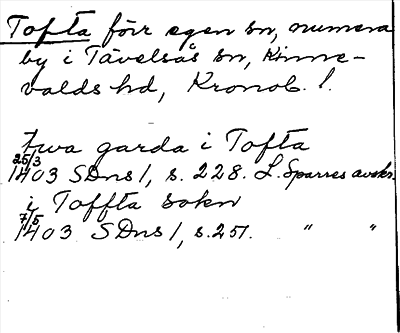 Tofta förr egen sn, numera
by i Tävelsås sn, Kinne-
valds hd, Kronob. l.
twa garda i Tofta
25/3 1403 SDns 1, s. 228. L. Sparres avskr.
i Toffta sokn
7/5 1403 SDns 1, s. 251. " "